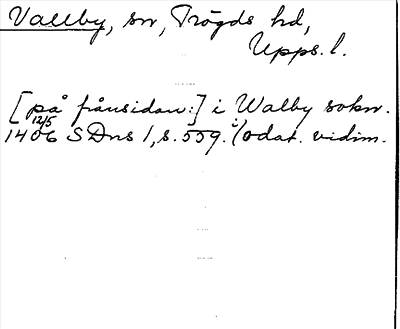 Vallby, sn, Trögds hd,
Upps. l.
[på frånsidan:] i Walby sokn.
12/5
1406 SDns 1, s. 559. i (odat. vidim.